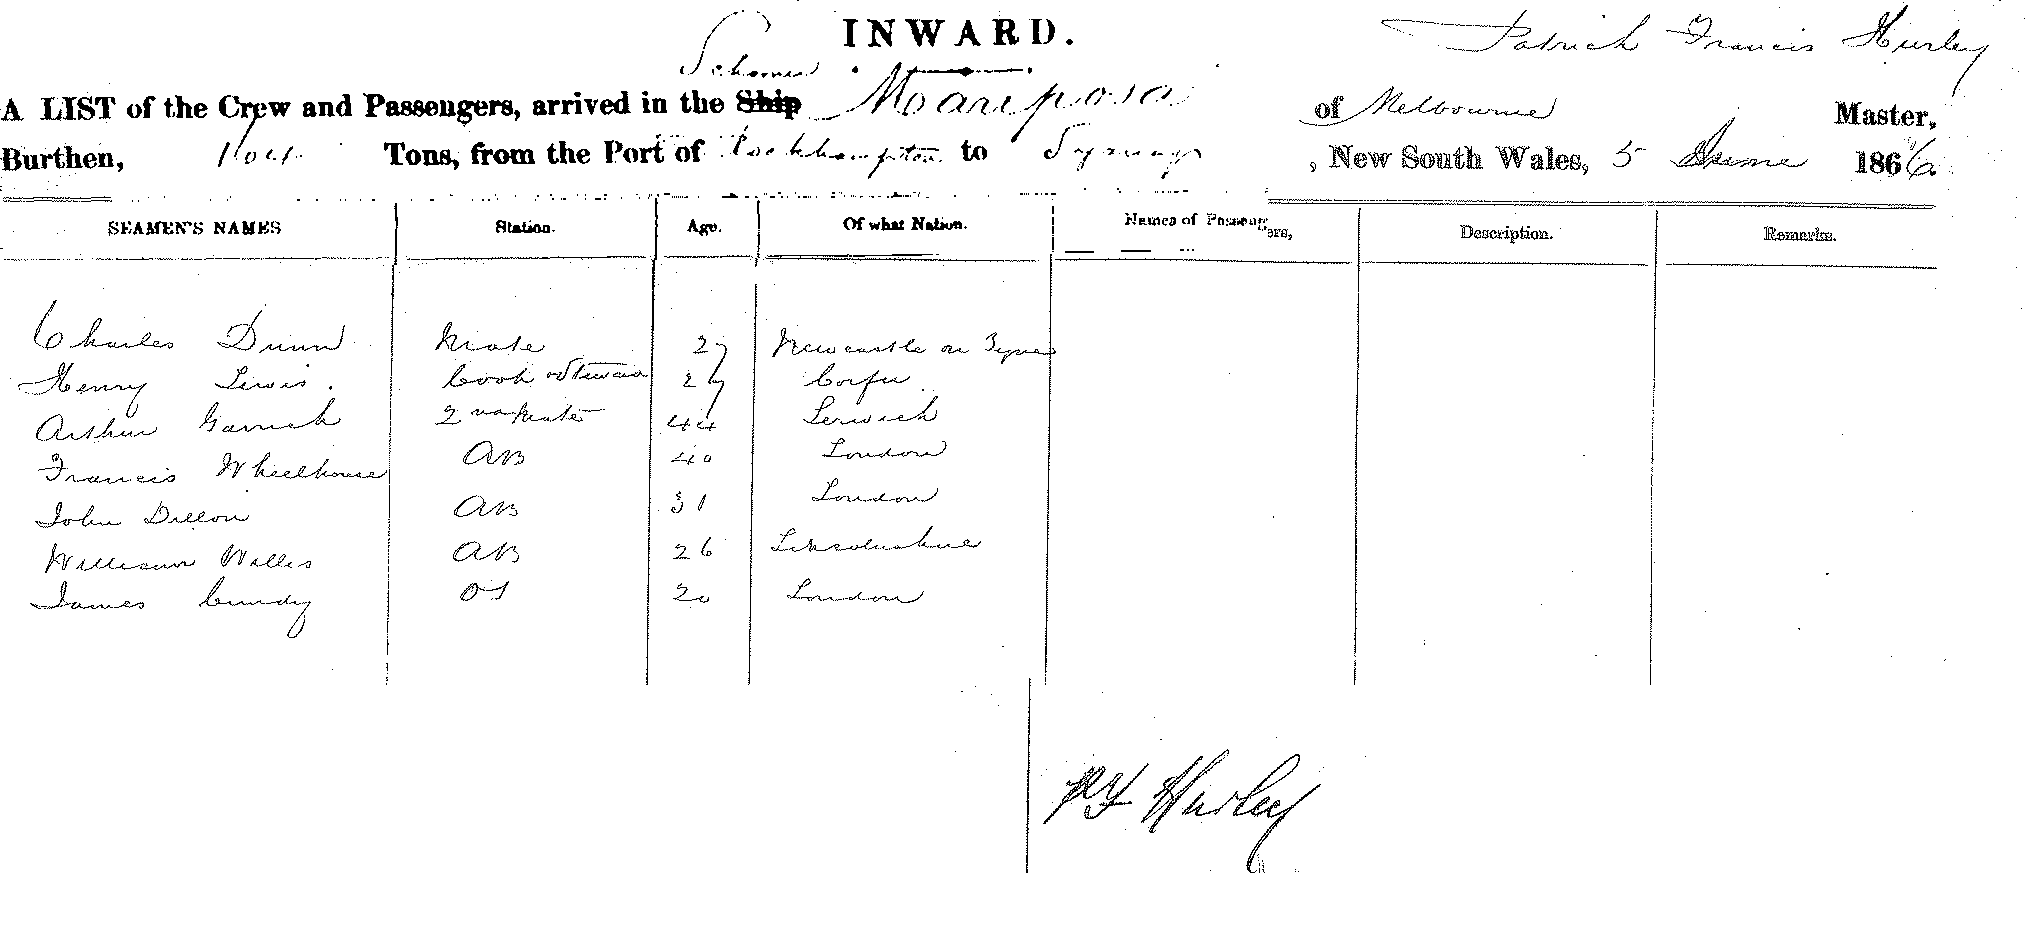 INWARD.
Patrick Francis Hurley
Schooner
A LIST of the Crew and Passengers, arrived in the Ship Mariposa of Melbourne Master,
Burthen, Tons, from the Port of Rockhampton to Sydney , New South Wales, 5 June 1866
SEAMEN'S NAMES Station. Age. Of what Nation. Names of Passengers, Description. Remarks.
Charles Dunn Mate 27 Newcastle on Tyne
Henry Lewis. Cook & Steward 27 Corfu
Arthur Garrick 2nd Mate 44 Lerwick
Francis Wheelhouse AB 40 London
John Dillon AB 31 London
William Willis AB 26 Lincolnshire
James Cundy OS 20 London
PF Hurley